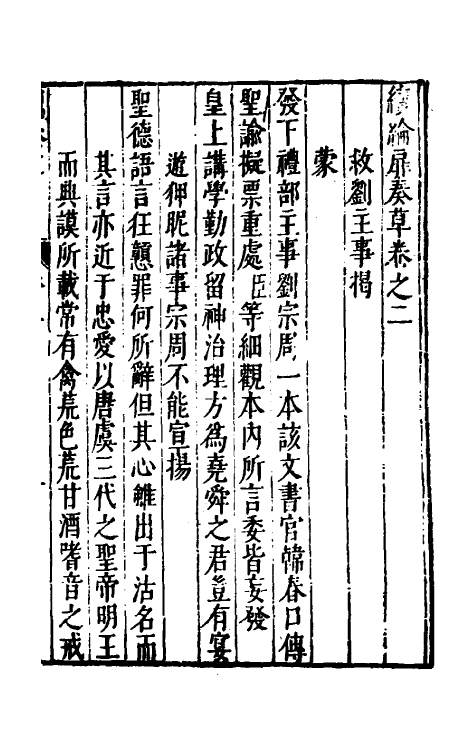 續綸扉奏草卷之二
救劉主事揭
蒙
發下禮部主事劉宗周一本該文書官韓春口傳
聖諭擬票重處臣等細觀本內所言委皆妄發
皇上講學勤政留神治理方為堯舜之君豈有宴
遊狎昵諸事宗周不能宣揚
聖德語言狂戇罪何所辭但其心雖出于沽名而
其言亦近于忠愛以唐虞三代之聖帝明王
而典謨所載常有禽荒色荒甘酒嗜音之戒